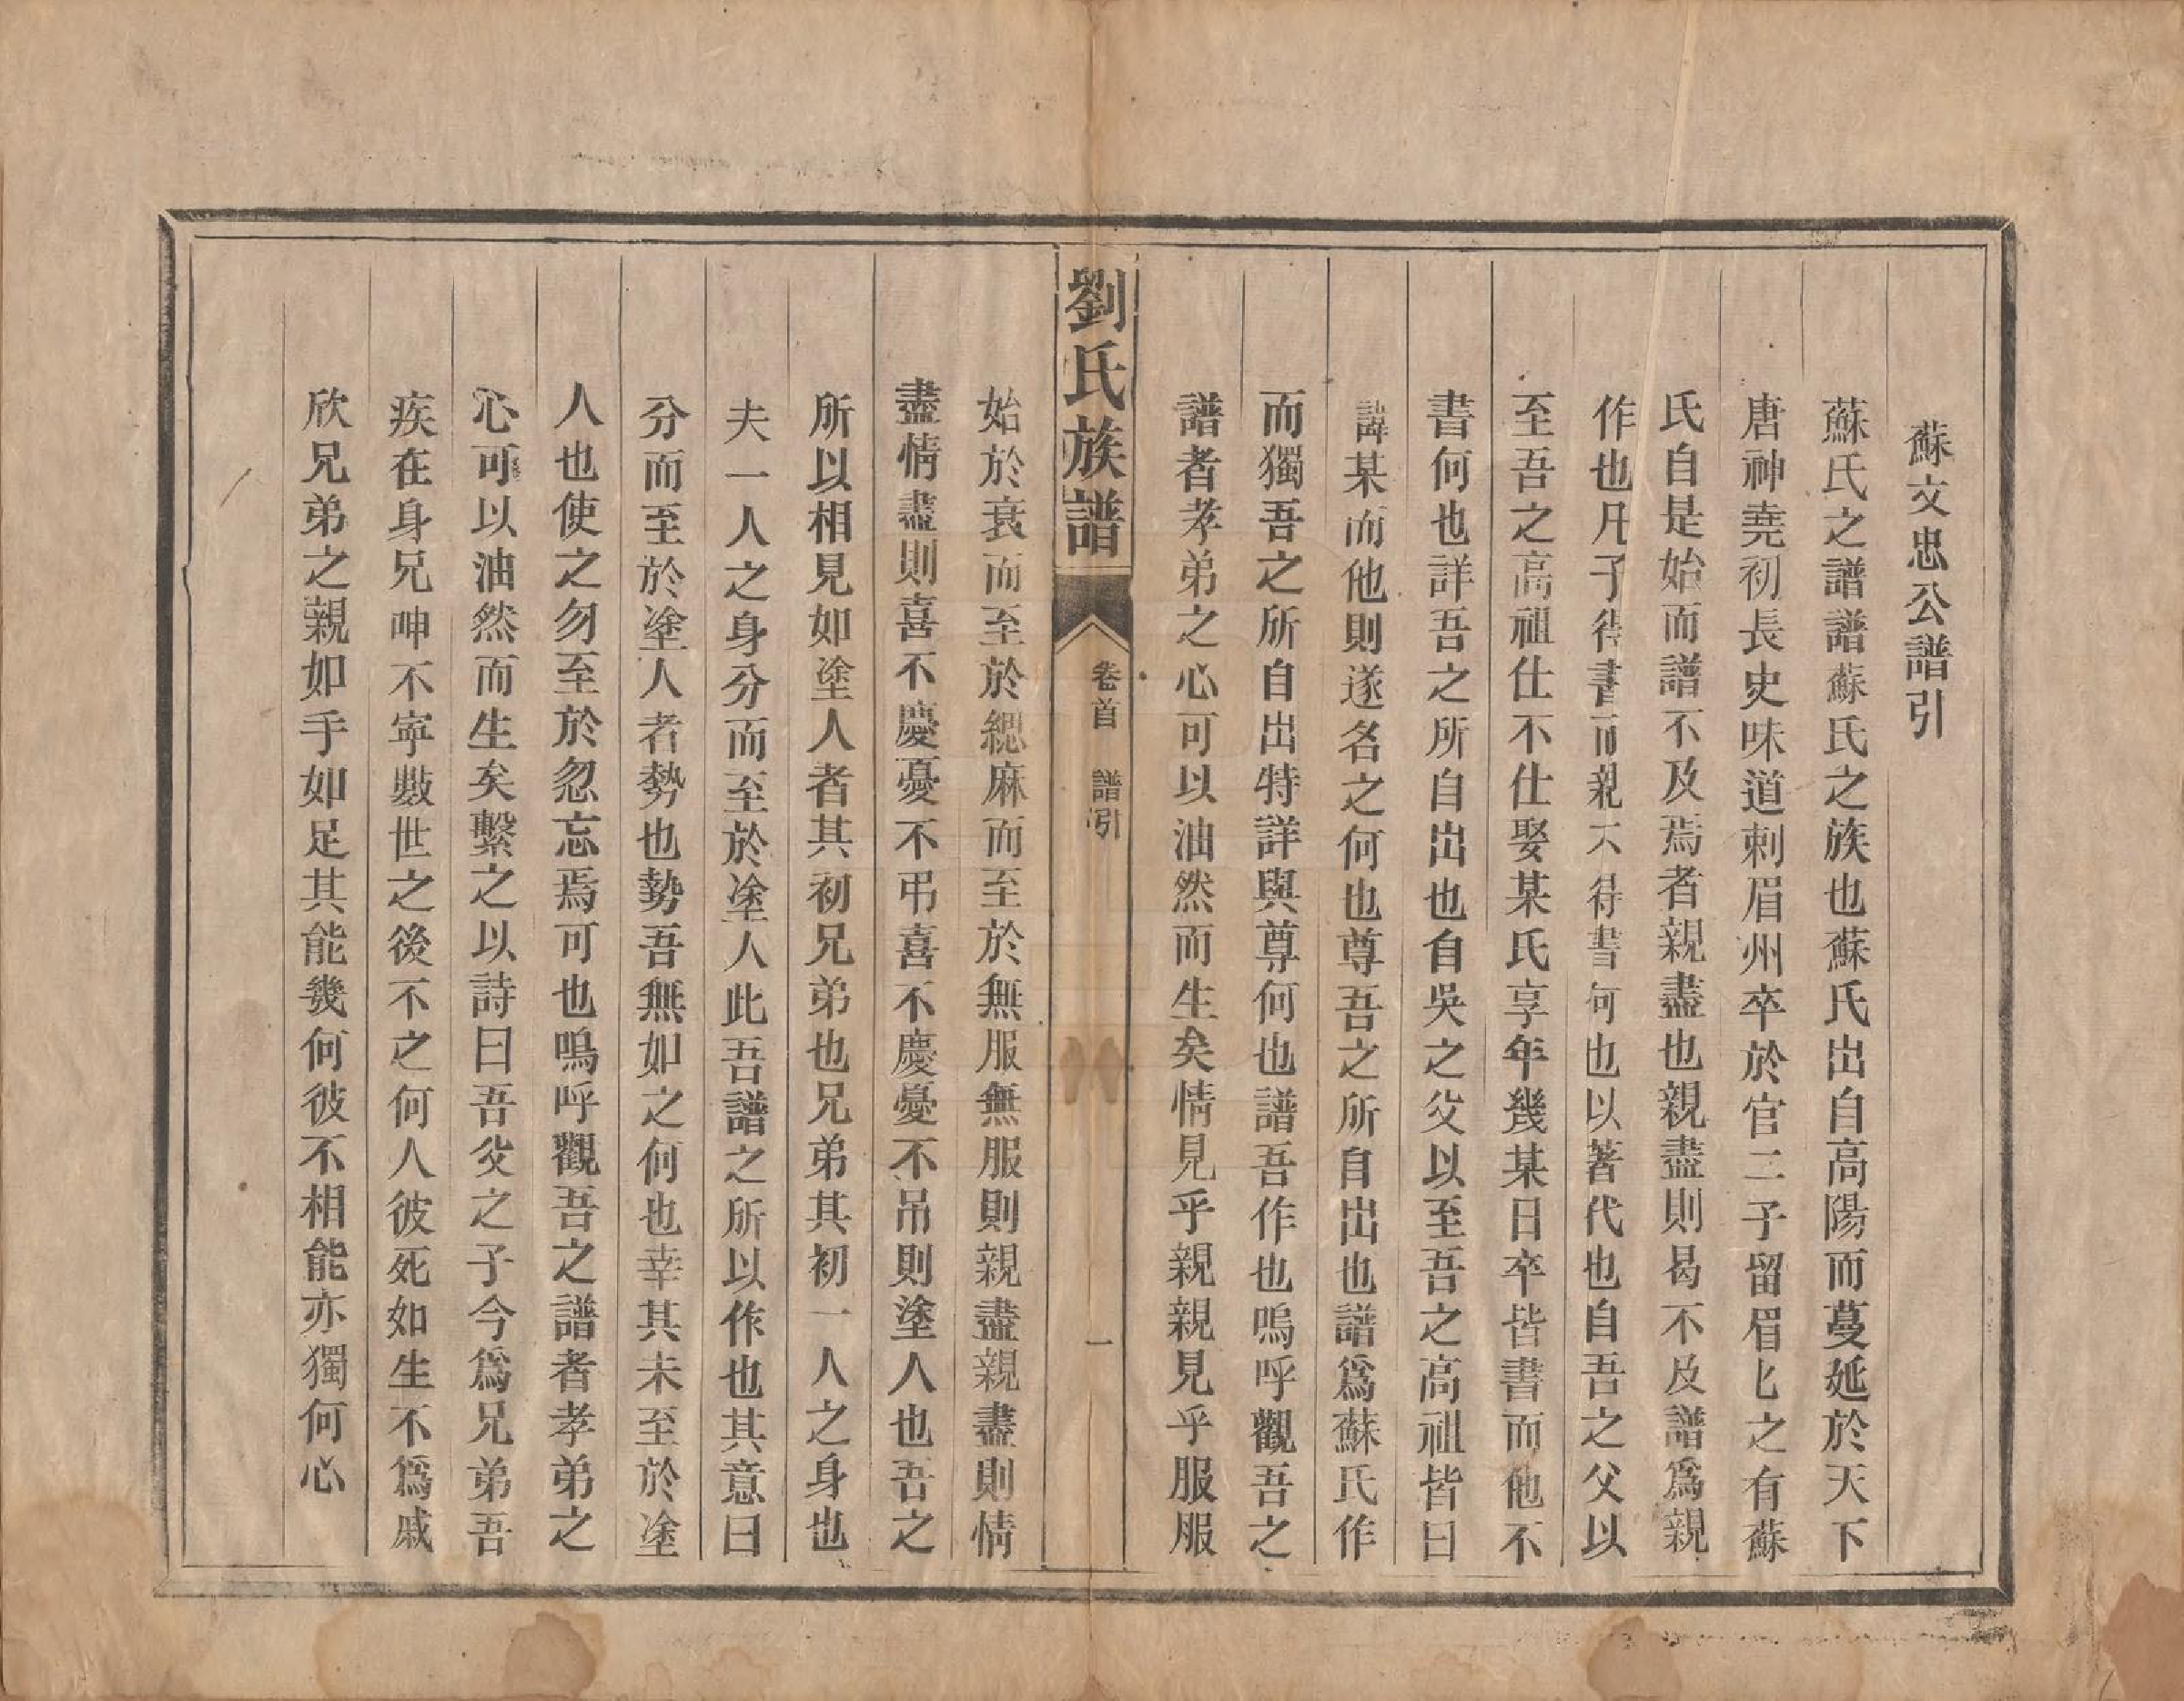 蘇文忠公譜引
蘇氏之譜譜蘇氏之族也蘇氏出自高陽而蔓延於天下
唐神堯初長史味道刺眉州卒於官二子留眉眉之有蘇
氏自是始而譜不及焉者親盡也親盡則曷不及譜爲親
作也凡子得書而親不得書何也以著代也自吾之父以
至吾之高祖仕不仕娶某氏享年幾某日卒皆書而他不
書何也詳吾之所自出也自吳之父以至吾之高祖皆曰
諱某而他則遂名之何也尊吾之所自出也譜爲蘇氏作
而獨吾之所自出特詳與尊何也譜吾作也嗚呼觀吾之
譜者孝弟之心可以油然而生矣情見乎親親見乎服服
劉氏族譜
卷首 譜引
一
始於衰而至於緦麻而至於無服無服則親盡親盡則情
盡情盡則喜不慶憂不弔喜不慶憂不吊則塗人也吾之
所以相見如塗人者其初兄弟也兄弟其初一人之身也
夫一人之身分而至於塗人此吾譜之所以作也其意曰
分而至於塗人者勢也勢吾無如之何也幸其未至於塗
人也使之勿至於忽忘焉可也嗚呼觀吾之譜者孝弟之
心可以油然而生矣繫之以詩曰吾父之子今爲兄弟吾
疾在身兄呻不寧數世之後不之何人彼死如生不爲戚
欣兄弟之親如手如足其能幾何彼不相能亦獨何心